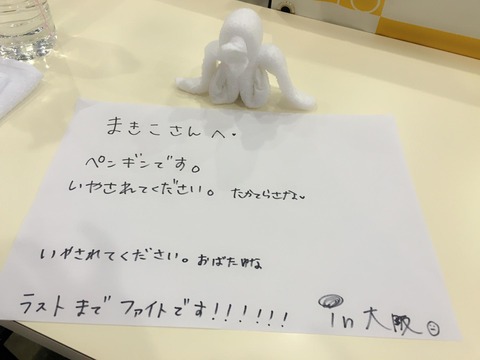 まきこさんへ。
ペンギンです。
いやされてください。 たかてらさだよ。
いやされてください。おばたゆな
ラストまでファイトです!!!!!!
in 大阪